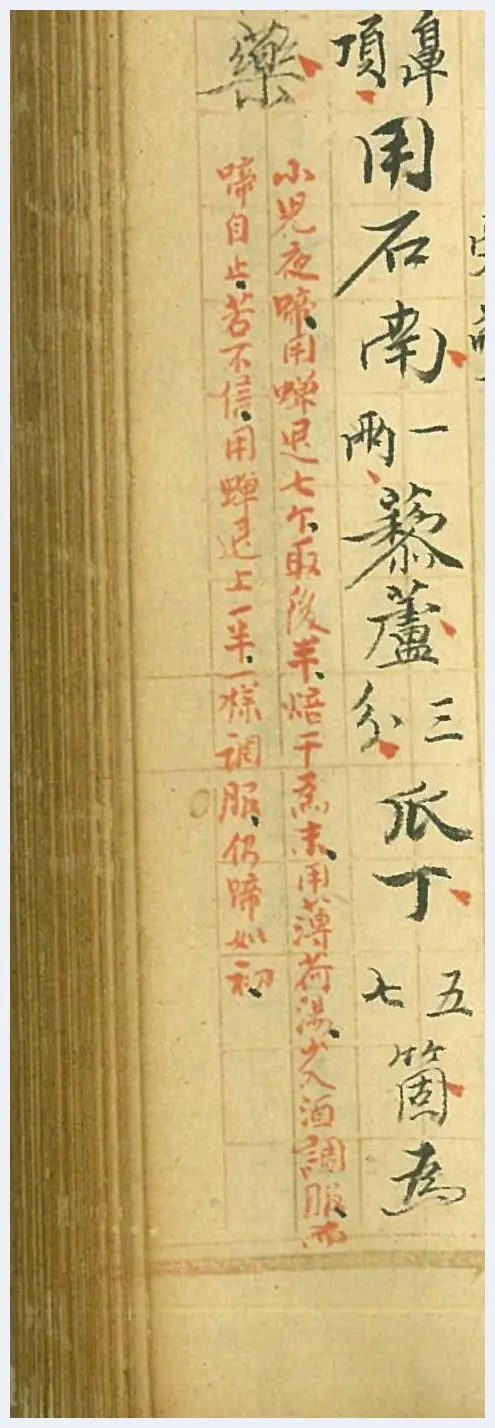 鼻項用石南一兩藜蘆三分瓜丁五七箇為
小児夜啼用蟬退七个取後半焙干為末用薄荷湯少入酒調服而
藥
啼自止若不信用蟬退上一半一樣調服仍啼如初